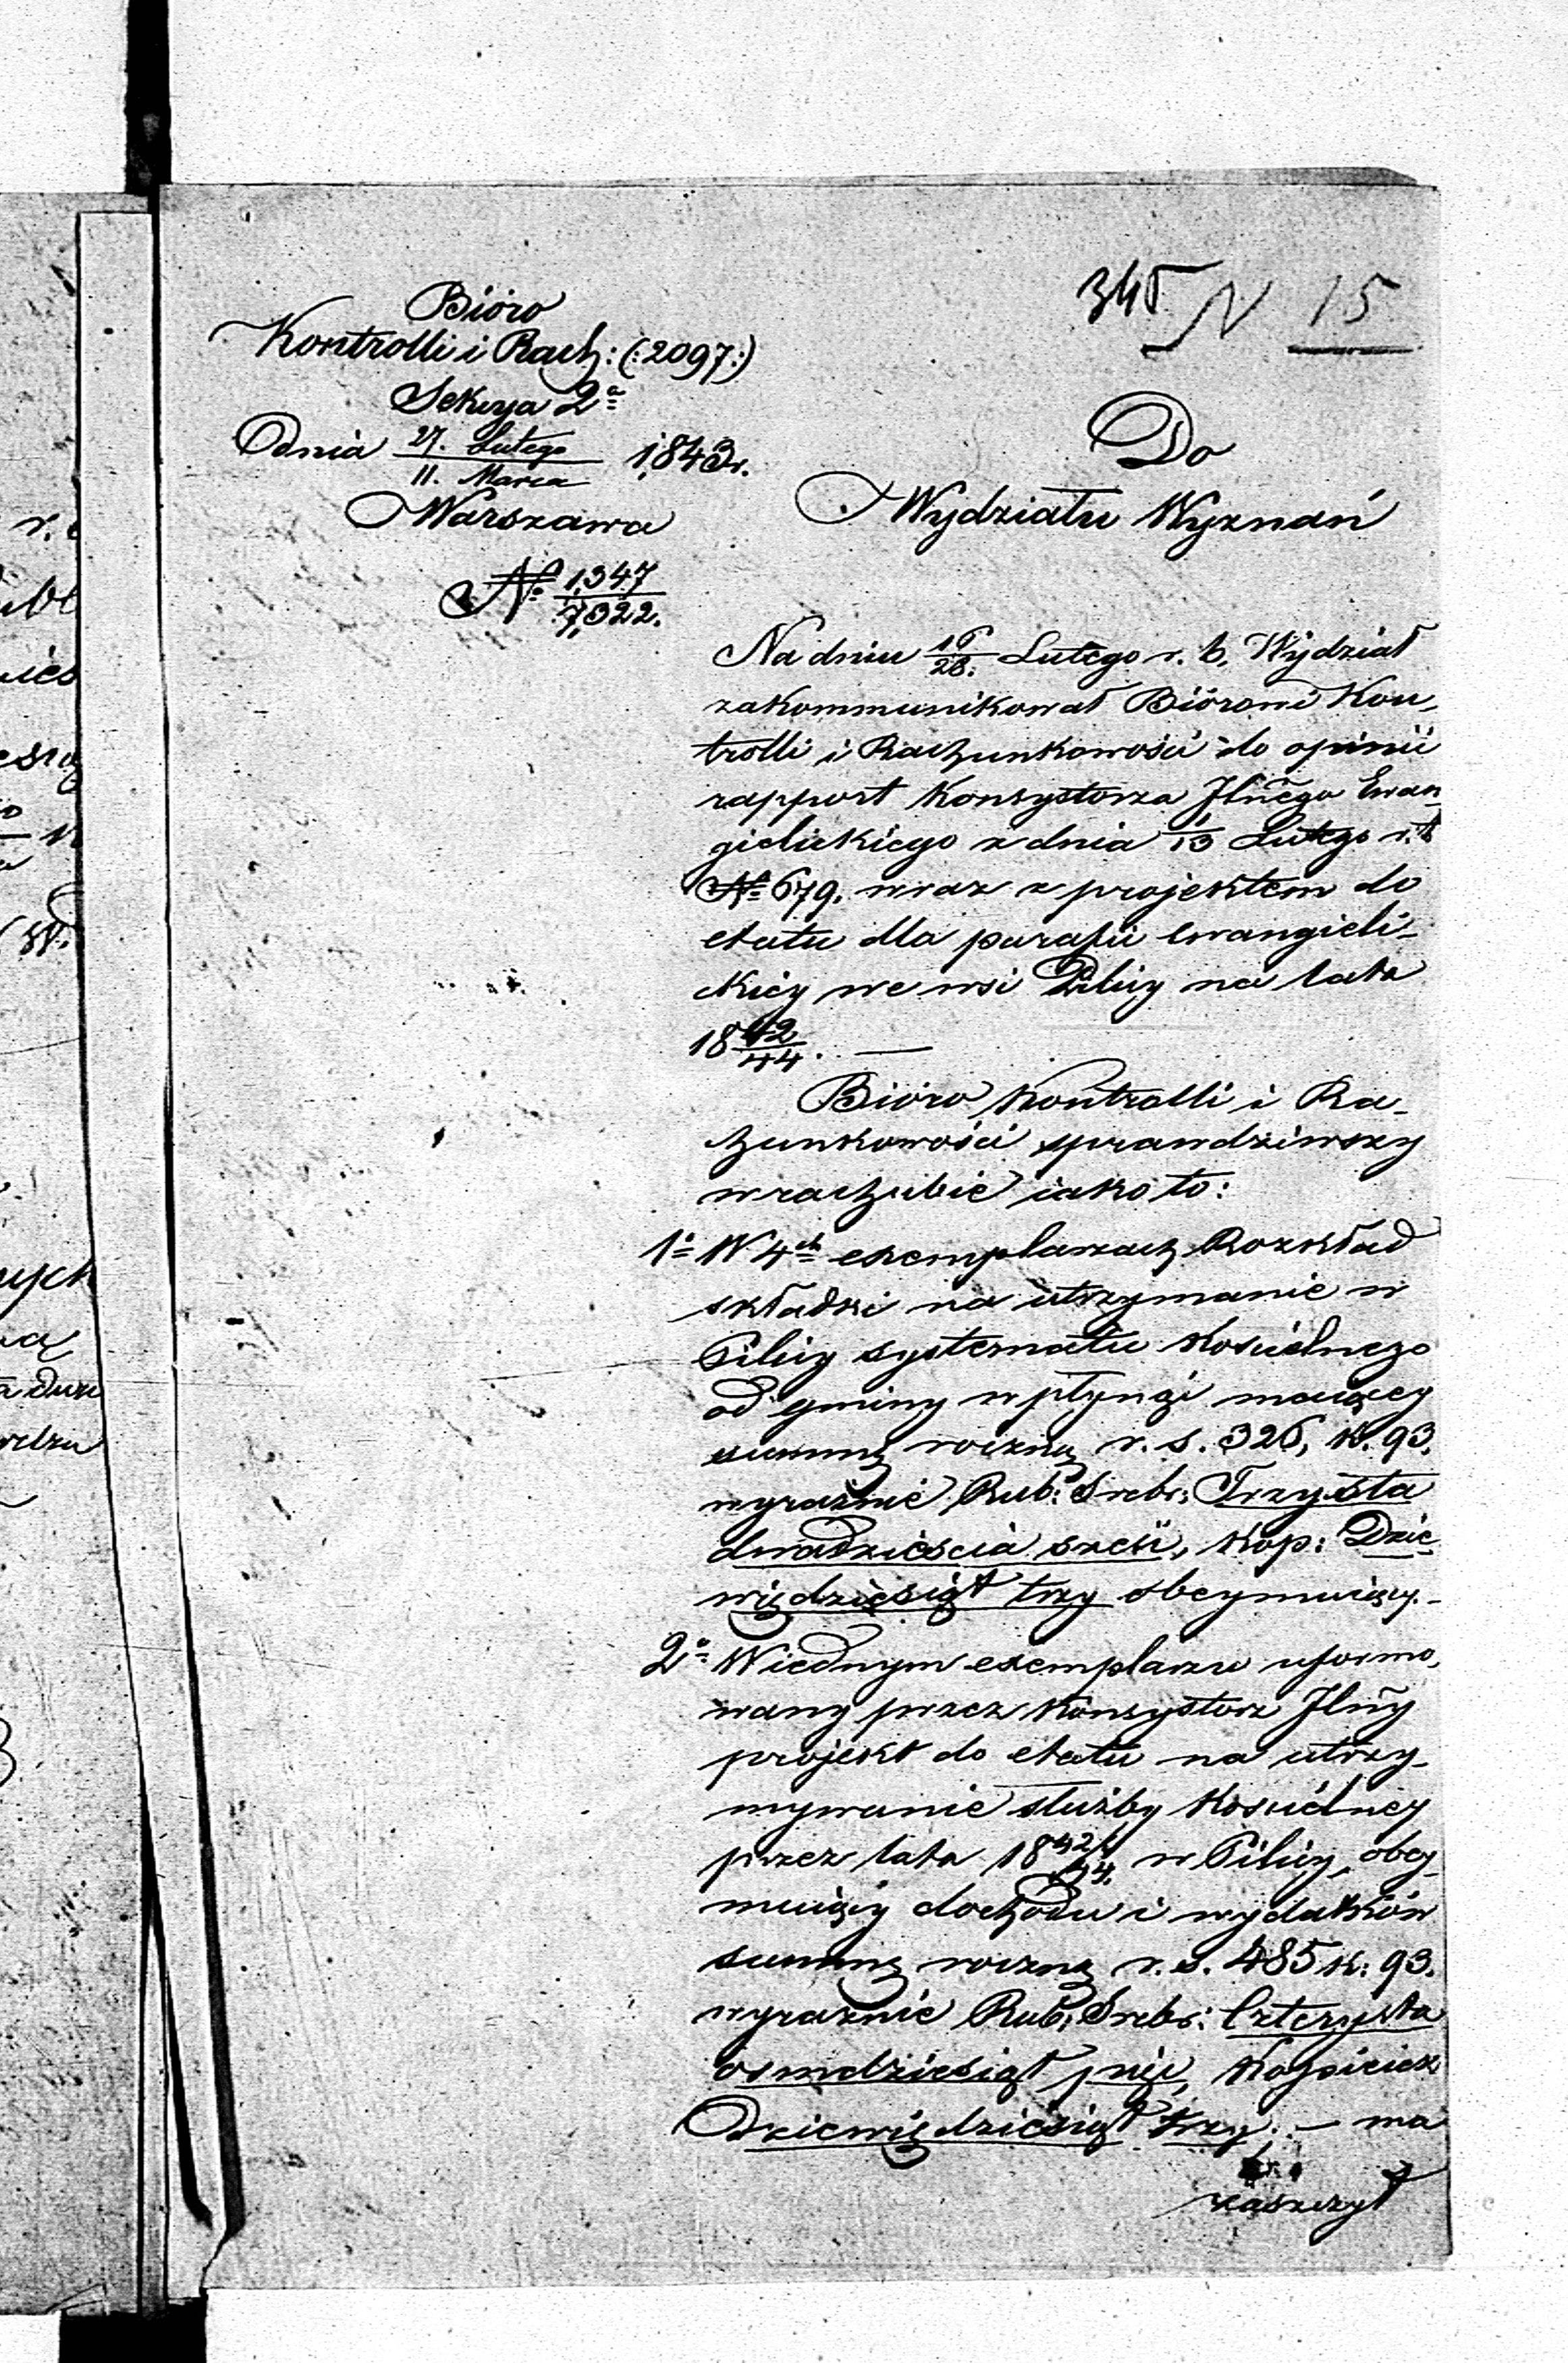 345. N 15
Bióro
Kontrolli i Rach: (:2097:)
Sekcya 2a
Dnia 27. Lutego / 11. Marca 1843 r.
Warszawa
№ 1,347 / 7,322.
Do
Wydziału Wyznań
Na dniu 16/28. Lutego r. b. Wydział
zakommunikował Biórowi Kon-
trolli i Rachunkowości do opinii
rapport Konsystorza Jlnego Ewan-
gielickiego z dnia 1/13 Lutego r. b.
№ 679. wraz z projektem do
etatu dla parafii ewangieli-
ckiey we wsi Pilicy na lata
18 42/44. —
Bióro Kontrolli i Ra-
chunkowości sprawdziwszy
w rachubie iako to:
1o W 4ch exemplarzach Rozkład
składki na utrzymanie w
Pilicy systematu Kościelnego
od gminy wpłynąć maiącey
summę roczną r. s. 326, k. 93.
wyraźnie Rub: Srebr: Trzysta
dwadzieścia sześć, kop: Dzie-
więdziesiąt trzy obeymuiący. -
2o W iednym exemplarzu uformo-
wany przez Konsystorz Jlny
projekt do etatu na utrzy-
mywanie służby Kościelney
przez lata 18 42/44. w Pilicy, obey-
muiący dochodu i wydatków
summę roczną r. s. 485 k: 93.
wyraźnie Rub: Srebr: Czterysta
osmdziesiąt pięć, Kopieiek
Dziewiędziesiąt trzy. — ma
zaszczyt